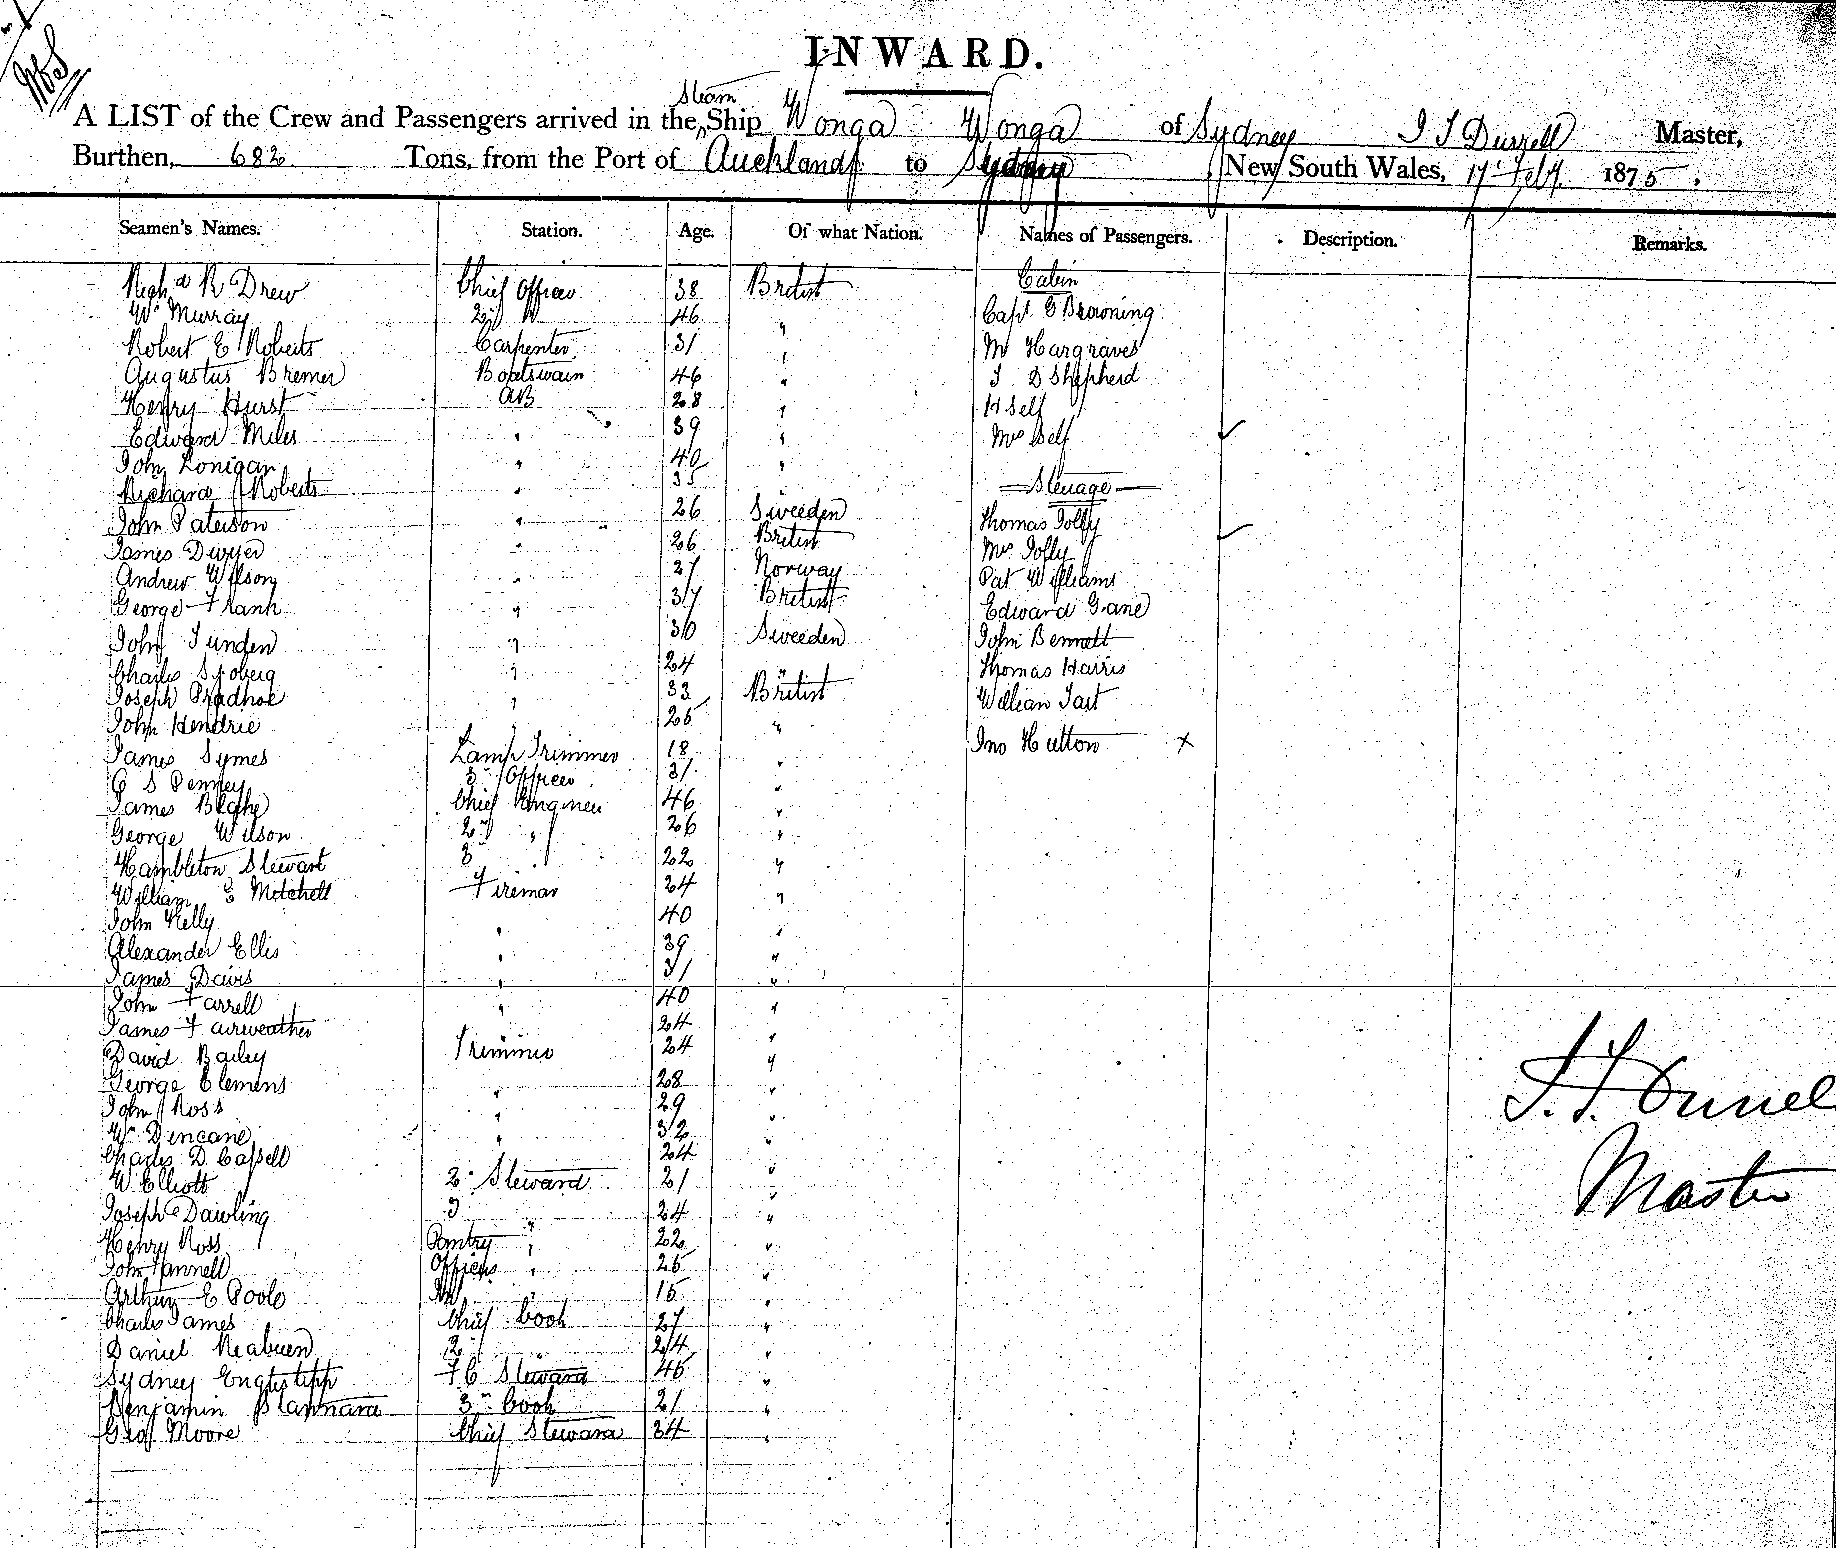 INWARD.
A LIST of the Crew and Passengers arrived in the Steam Ship Wonga Wonga of Sydney Master,
Burthen, 682 Tons, from the Port of Auckland to Sydney New South Wales, 17 Feby 1875.
Seamen's Names. Station. Age. Of what Nation. Names of Passengers. Description. Remarks.
Richd R Drew Chief Officer 38 British Cabin
Wm Murray 2nd 46 " Capt E Browning
Robert E Roberts Carpenter 31 " Mr Hargraves
Augustus Bremer Boatswain 46 " D Shepherd
Henry Hurst AB 28 " H Self
Edward Miles " 39 " Mrs Self
John Lonigan " 40 "
Richard Roberts " 35 Steerage
John Paterson " 26 Sweeden Thomas Jolly
James Dwyer " 26 British Mrs Jolly
Andrew Wilson " 27 Norway Pat Williams
George Frank " 37 British Edward Gane
John Sunden " 30 Sweeden John Bennett
Charles Sjoberg " 24 " Thomas Harris
Joseph Pradhoe " 33 British William Tart
John Hendrie " 26 "
Jno Hutton x
James Symes Lamp Trimmer 18 "
C S Penney 3rd Officer 31 "
James Blake Chief Engineer 46 "
George Wilson 2nd " 26 "
Hambleton Stewart 3 " 22 "
William G Mitchell Fireman 24 "
John Kelly " 40 "
Alexander Ellis " 39 "
James Davis " 31 "
John Farrell " 40 "
James Fairweather 24 "
David Bailey Trimmer 24 "
George Clemens " 28 "
John Ross " 29 "
Wm Dincane " 32 "
Charles D Cassell 24 "
W Elliott 2nd Steward 21 "
Joseph Dawling 3 " 24 "
Henry Ross Pantry " 22 "
John Fannell Officers " 25 "
Arthur E Poole " 15 "
Charles James Chief Cook 27 "
Daniel Reabuen 2 " 24 "
Sydney F C Steward 45 "
Benjamin Stannard 3rd Cook 21 "
Geo Moore Chief Steward 34 "
Master